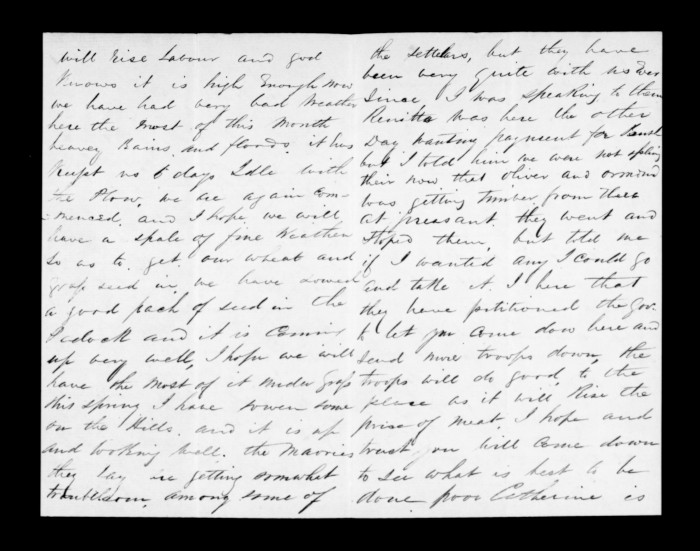 will rise Labour and god
Knows it is high Enough now
we have had very bad Weather
here the most of this Month
heavey Rains and floods it has
Keept us 6 days Idle with
the Plow, we are again Com-
-menced, and I hope we will
have a spale of fine Weather
So as to get our wheat and
grass seed in, we have sowed
a good pach of seed in the
Padock and it is Coming
up very well, I hope we will
have the most of it under Grass
this spring I have sowen some
on the Hills, and it is up
and looking well. the Maories
they say is getting somwhat
troublesom, among some of
the settelers, but they have
been very quite with us Ever
Since I was speaking to them
Renitta was here the other
Day Wanting payment for
but I told him we were not
their now that oliver and ormond
was getting timber from theer
at preasant they went and
stoped them, but told me
if I wanted any I could go
and take it. I here that
they have petitioned the Gov.
to let you Come down here and
Send more troops down, the
troops will do good to the
place as it will Rise the
prise of meat, I hope and
trust you Will Come down
to See what is best to be
done poor Catherine is